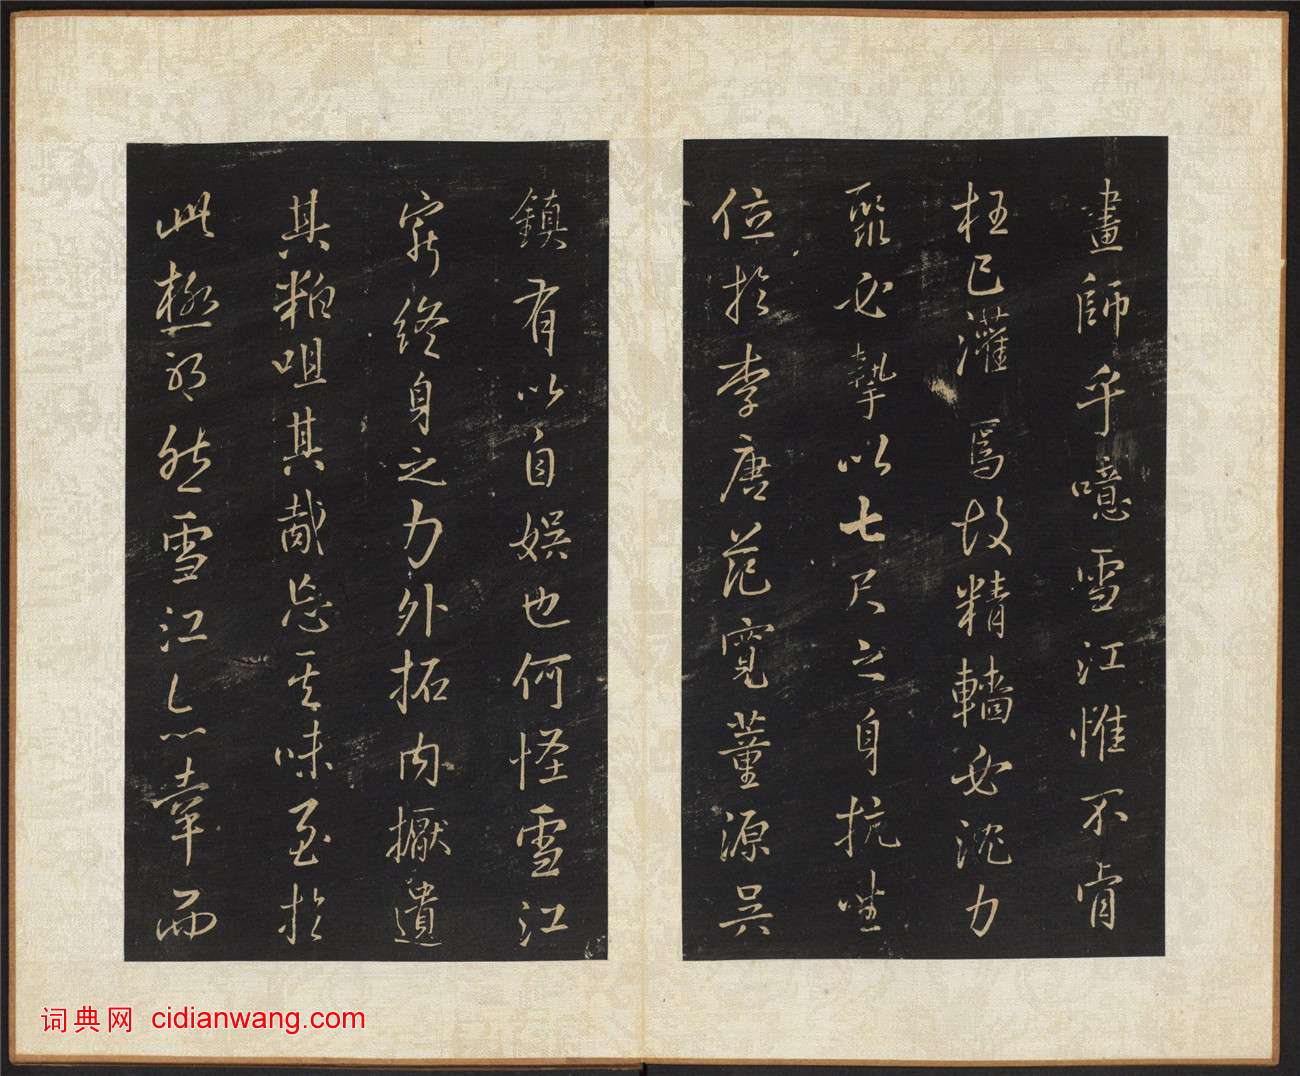 畫師乎噫雪江惟不肯
枉己灌焉故精轖必沈力
聚必摯以七尺之身抗坐
位於李唐范寬董源吳
鎮有以自娛也何怪雪江
窮終身之力外拓内擫遺
其粗咀其胾忘其味至於
此極耶然雪江亦幸而
词典网 cidianwang.com